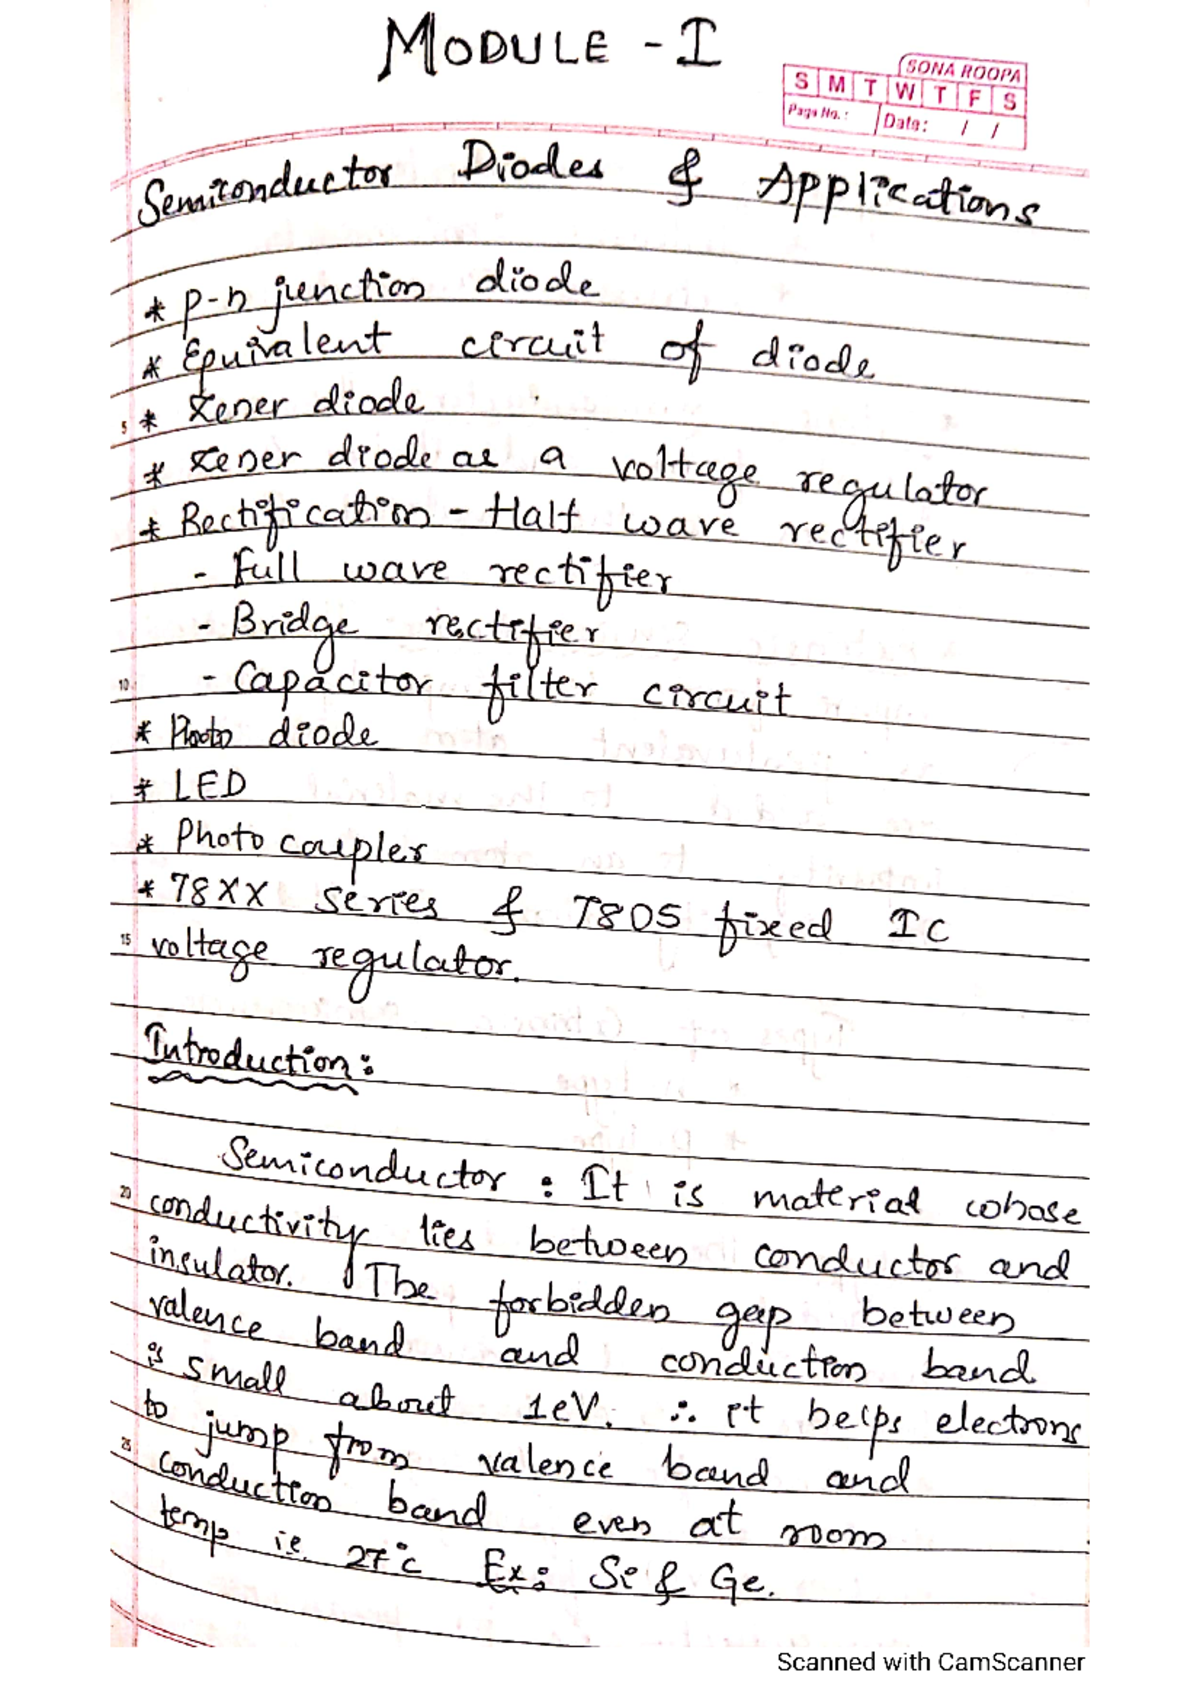 MODULE - I
SONA ROOPA
S M T W T F S
Page No.: Date: / /
Semiconductor Diodes & Applications
* p-n junction diode
* Equivalent circuit of diode
5 * Zener diode
* Zener diode as a voltage regulator
* Rectification - Half wave rectifier
- Full wave rectifier
- Bridge rectifier
10 - Capacitor filter circuit
* Photo diode
* LED
* Photo coupler
* 78XX series & 7805 fixed IC
15 voltage regulator.
Introduction:
Semiconductor : It is material whose
20 conductivity lies between conductor and
insulator. The forbidden gap between
valence band and conduction band
is small about 1eV. ∴ it helps electrons
to jump from valence band and
25 conduction band even at room
temp ie. 27°c Ex: Si & Ge.
Scanned with CamScanner